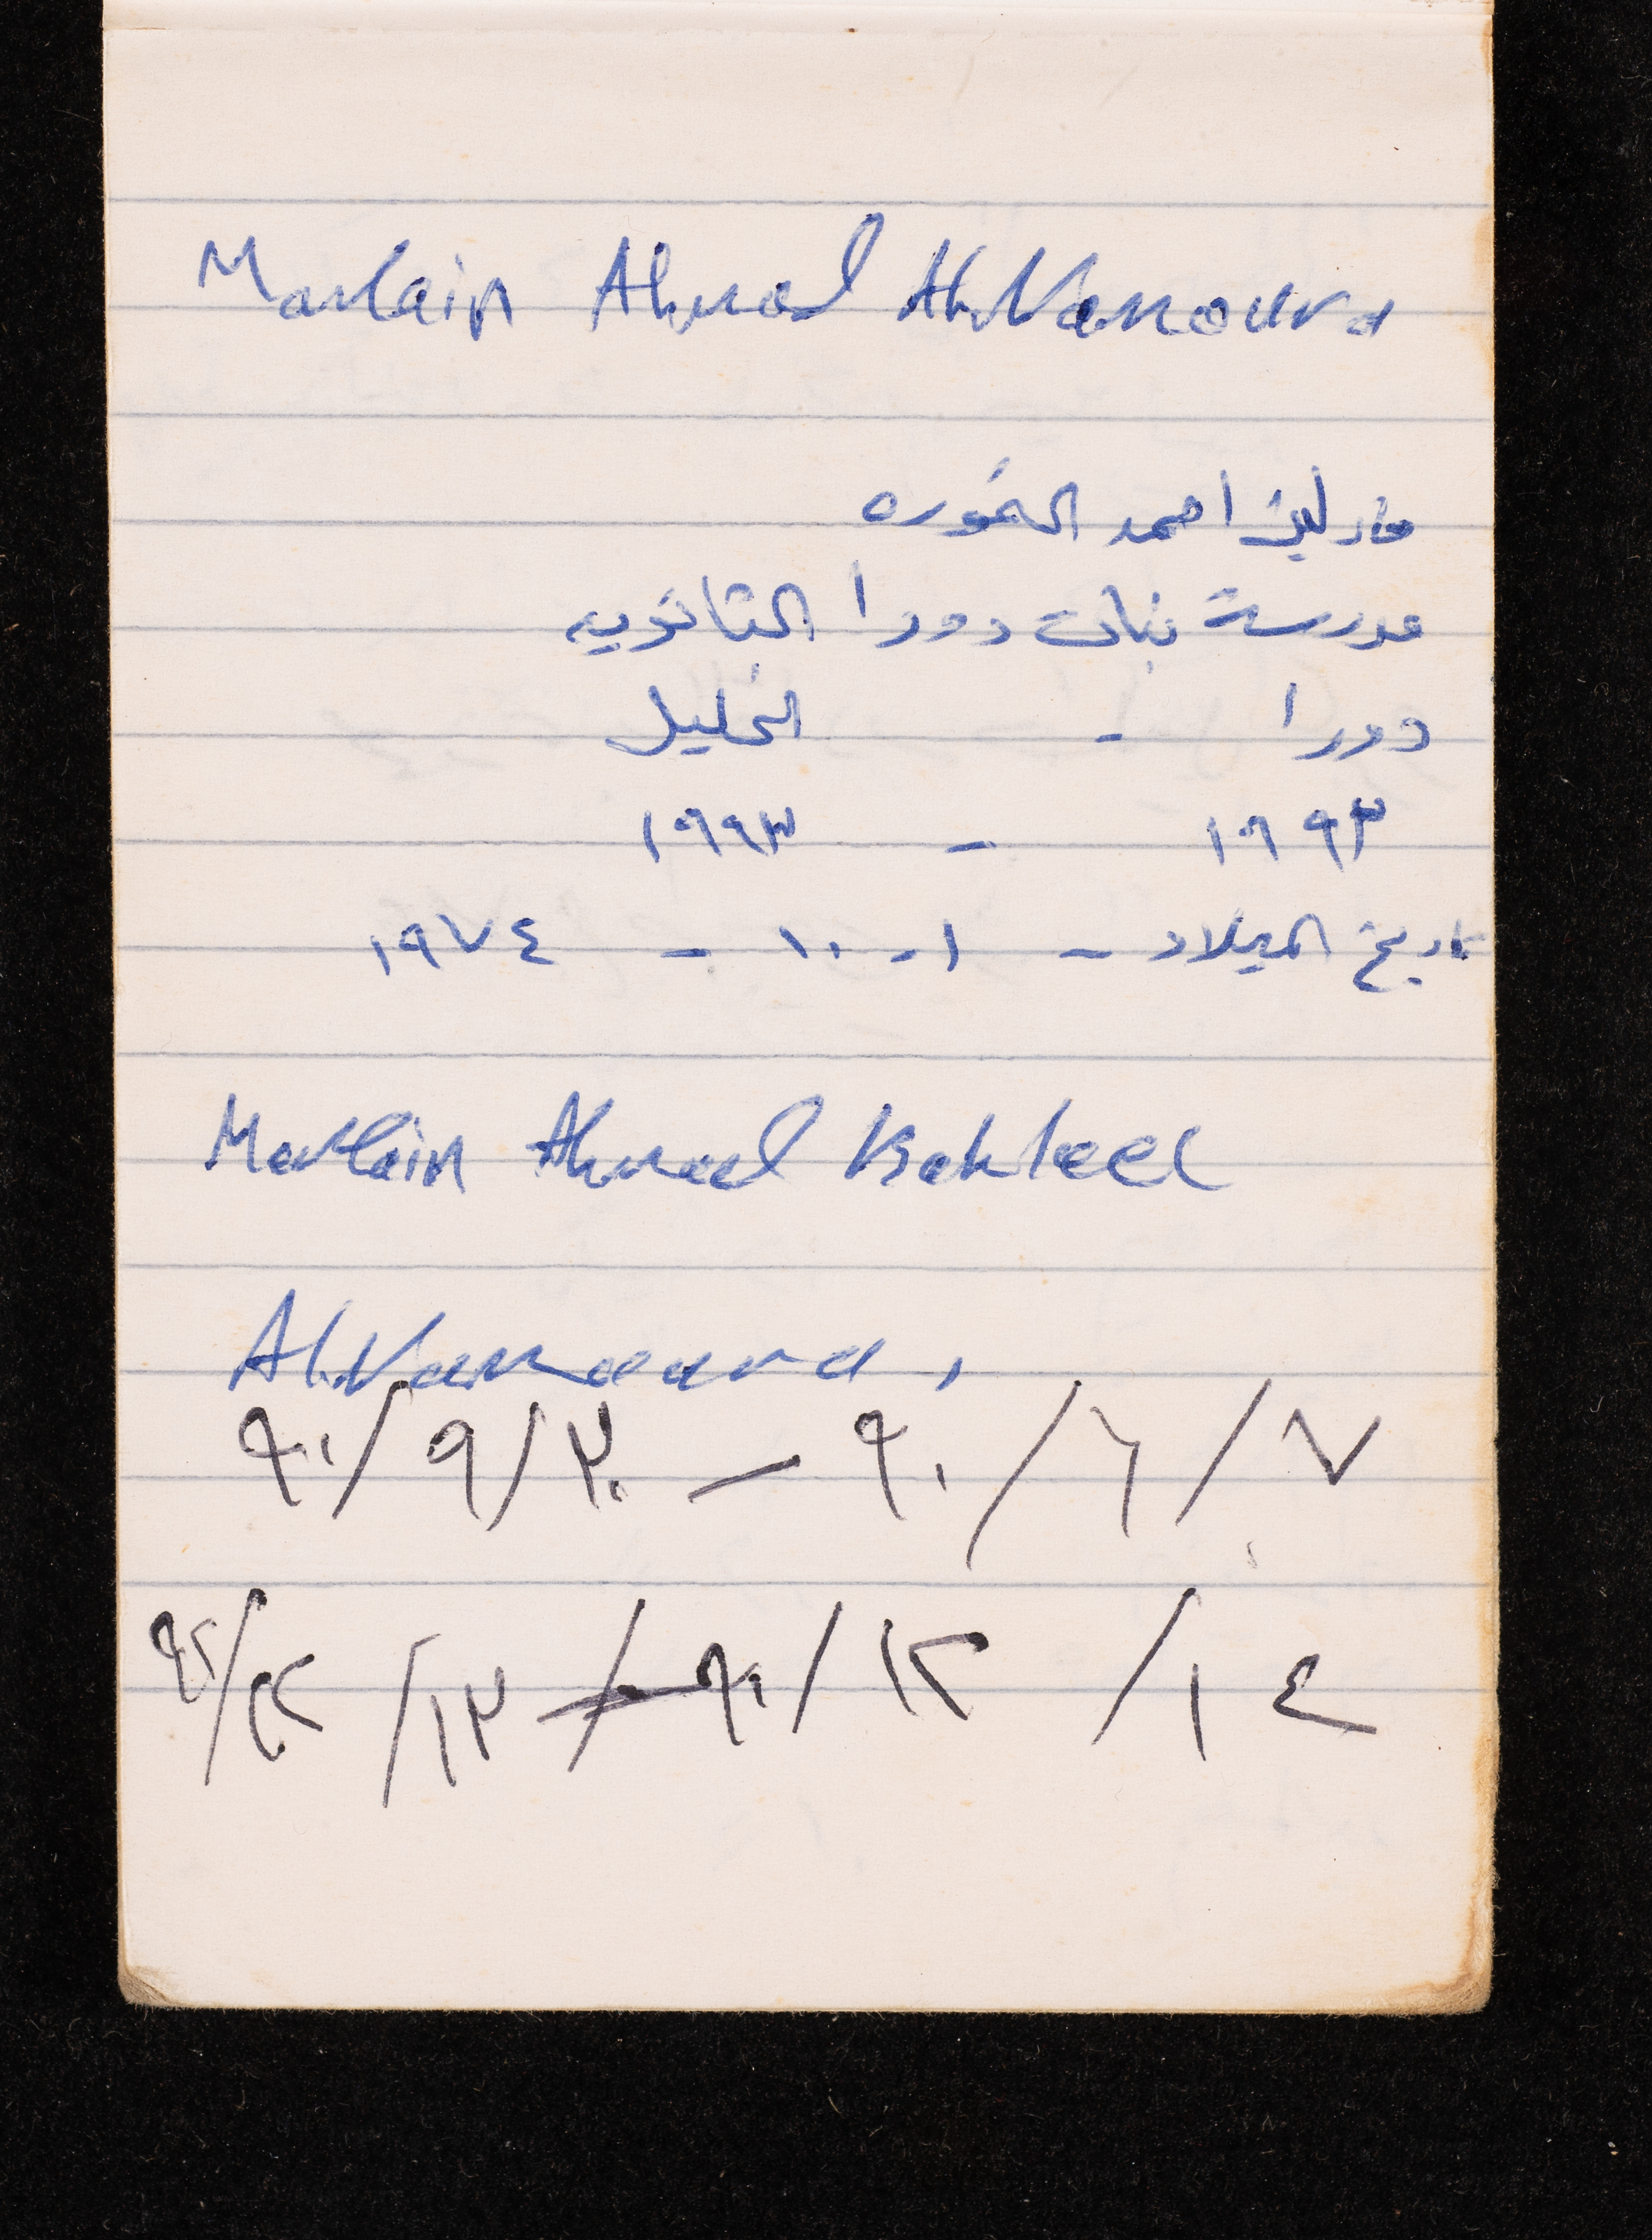 Marlain Ahmad Al.Namoura
مارلين احمد النموره
مدرسة بنات دورا الثانويه
دورا - الخليل
١٩٩٣ - ١٩٩٣
تاريخ الميلاد - ١ - ١٠ - ١٩٧٤
Marlain Ahmad Kahleel
Al.Namoura,
٧/٦/٩٠ – ٣٠/٩/٩٠
١٤/١٢/٩٠